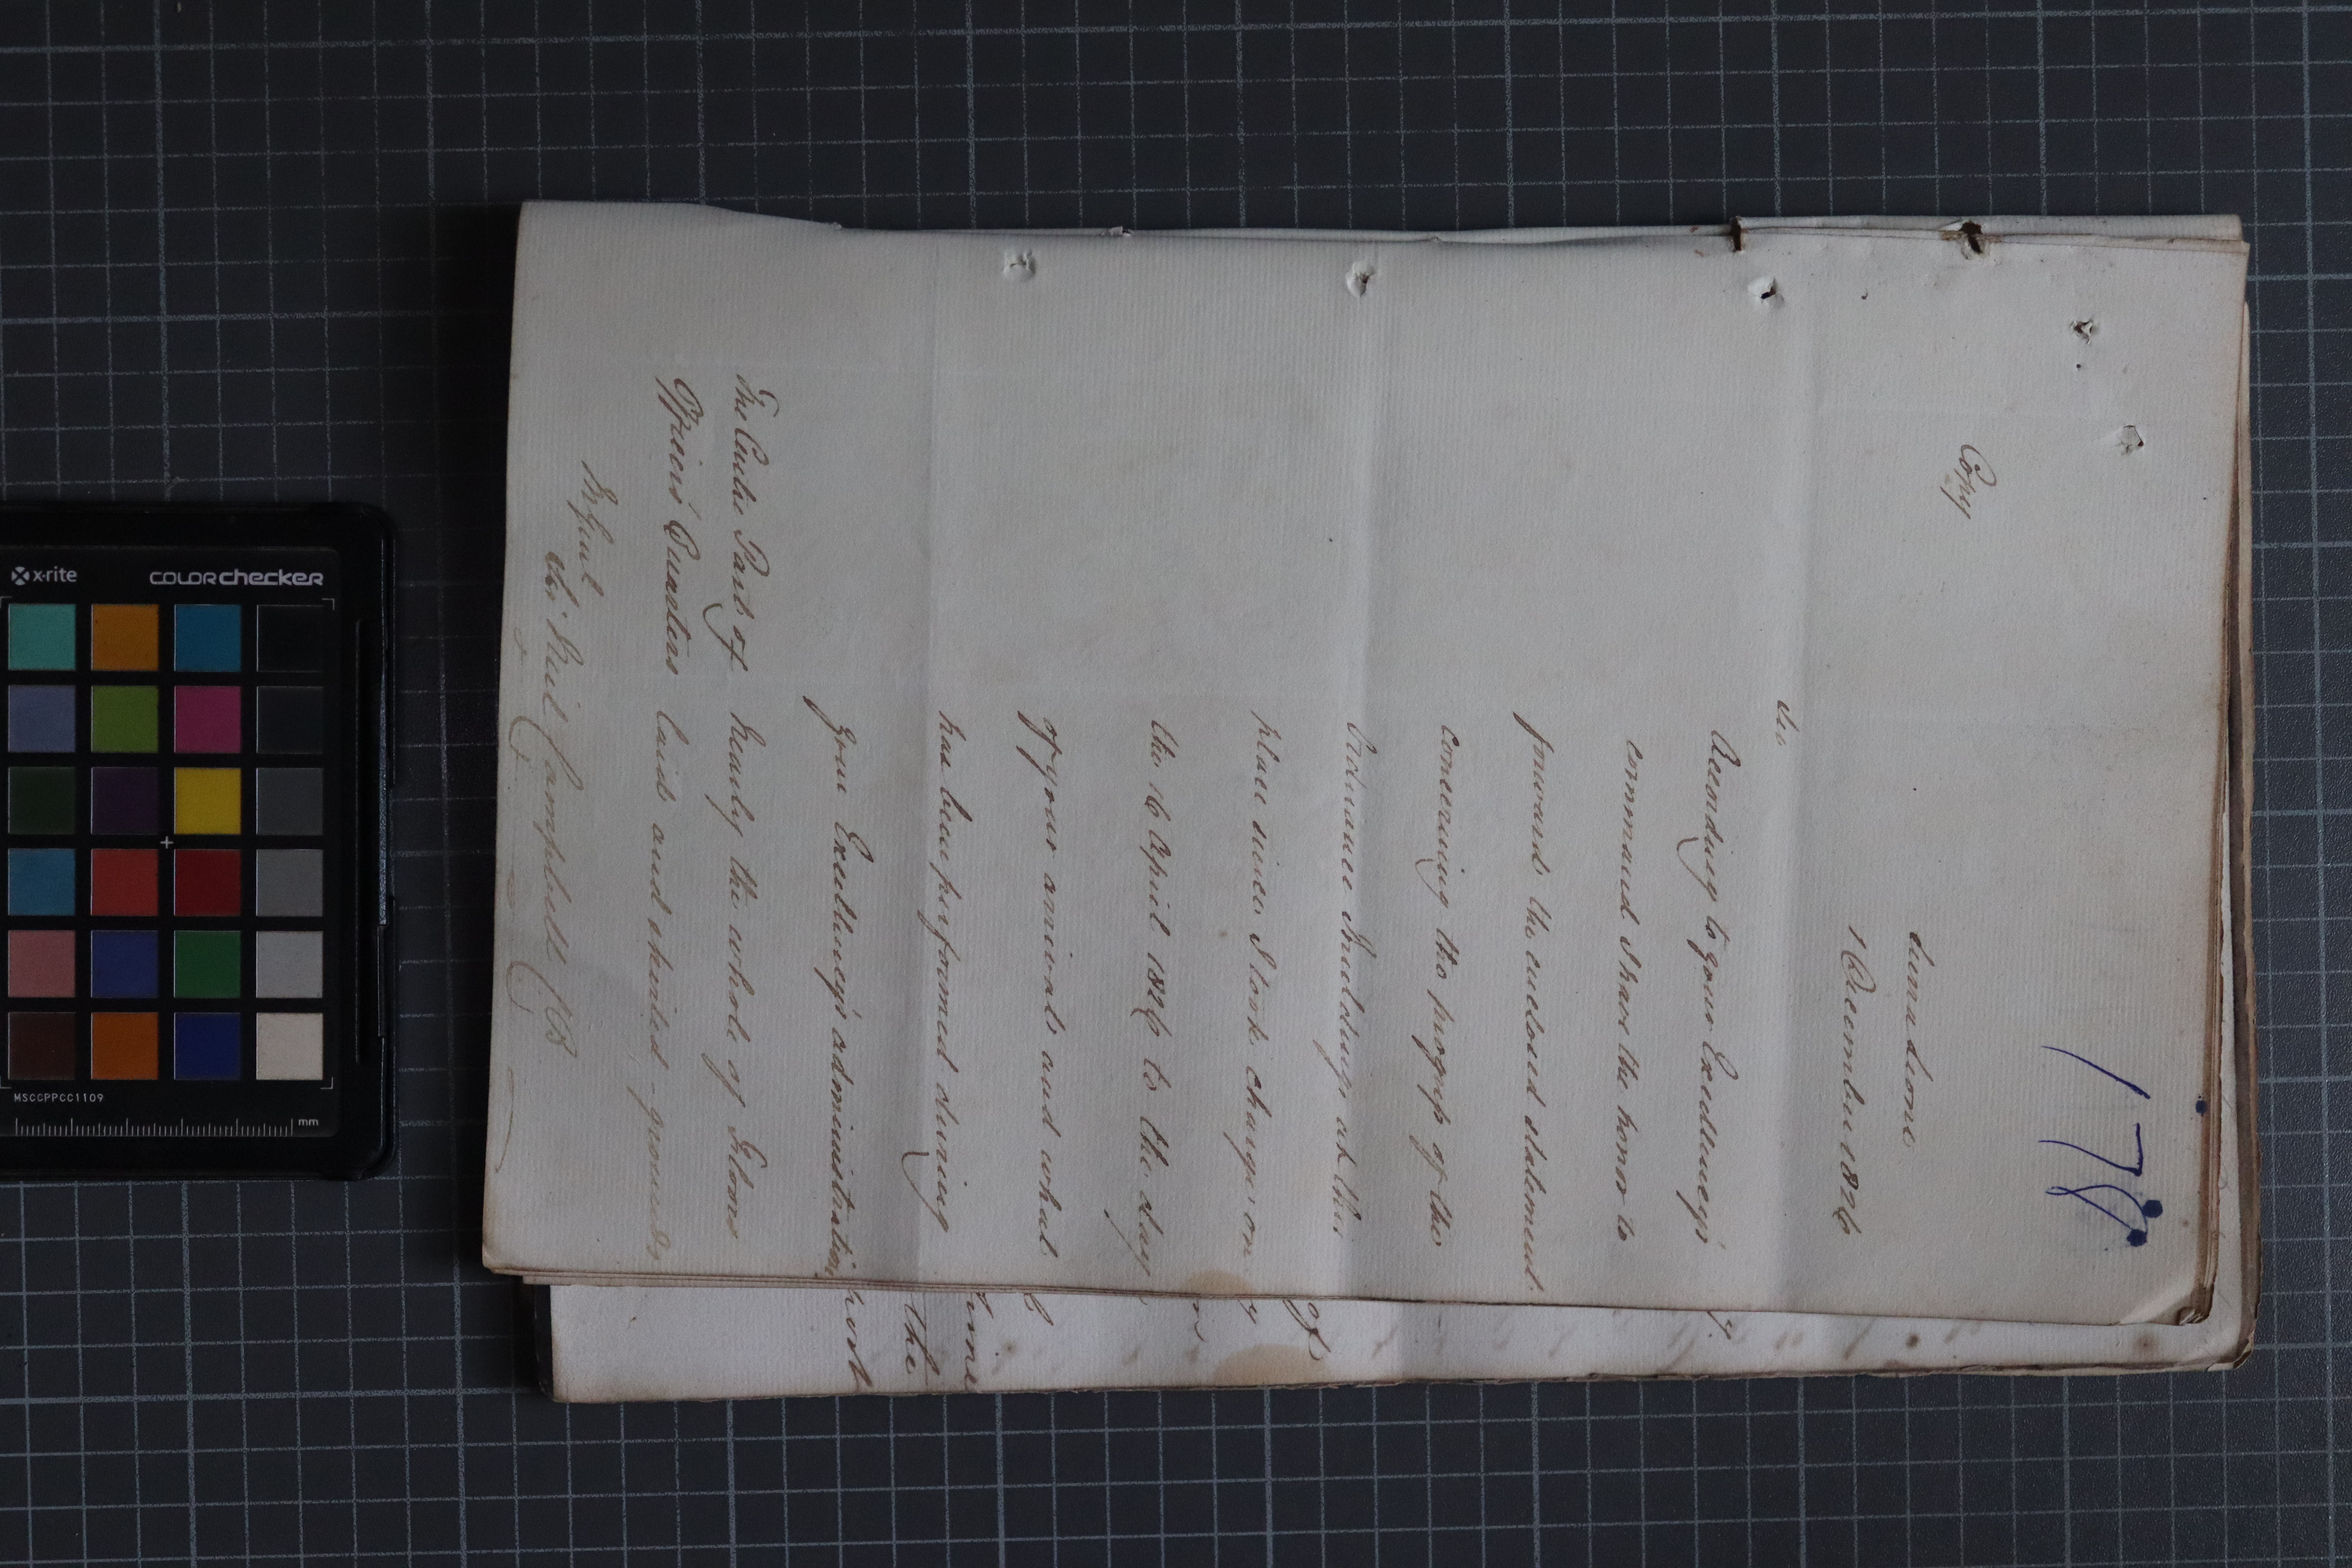 178
Copy
Sierra Leone
1 December 1826
Sir
According to your Excellency's
command I have the honor to
forward the enclosed statement
concerning the progress of the
Ordnance Buildings which
place since I took charge on
the 16 April 1826 to the day
of your arrival and what
has been performed during
your Excellency's administration
The Centre Part of nearly the whole of Floors
Officers' Quarters laid and shinted - grounds
M. Genl
Sir Neil Campbell CB
of
time
the
x-rite
colorchecker
MSCCPPCC1109
mm